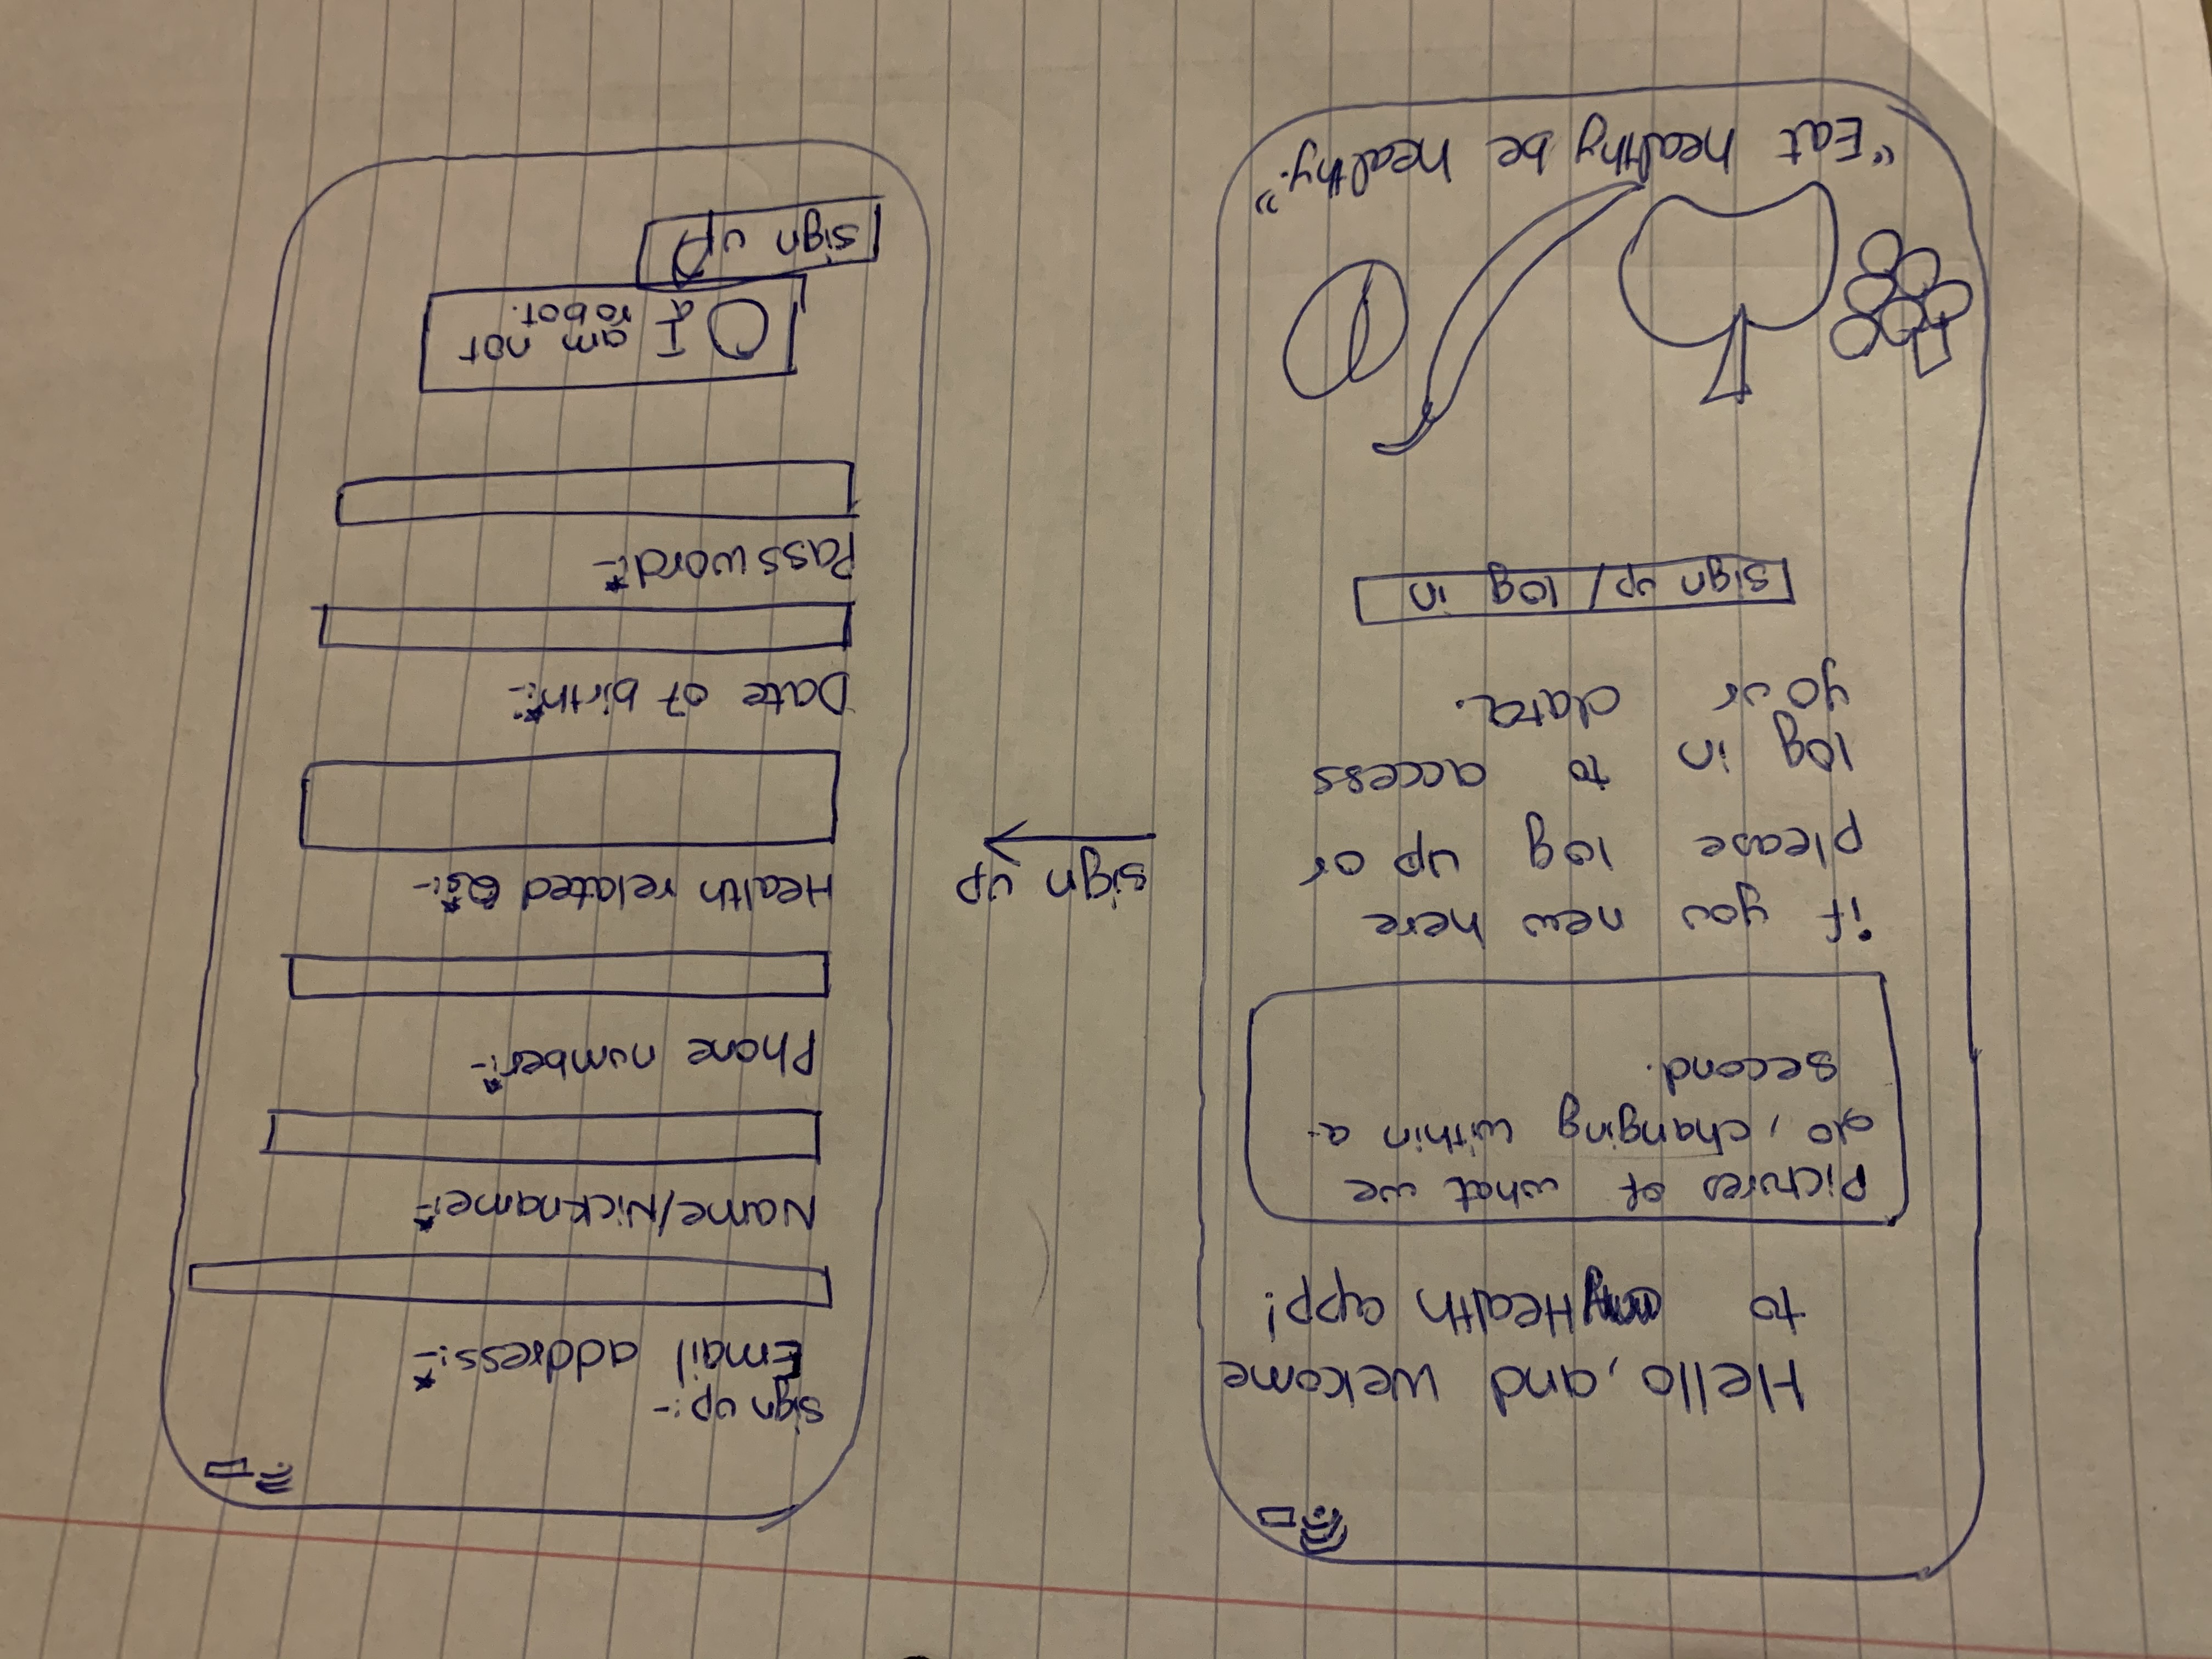 Hello, and welcome
to Health app!
Pictures of what we
do, changing within a
second.
if you new here
please log up or
log in to access
your data.
sign up/ log in
"Eat healthy be healthy."
sign up
sign up:-
Email address:-*
Name/Nickname:-*
Phone number:-*
Health related Qs:-*
Date of birth:-*
Password:-*
I am not
a robot.
sign up